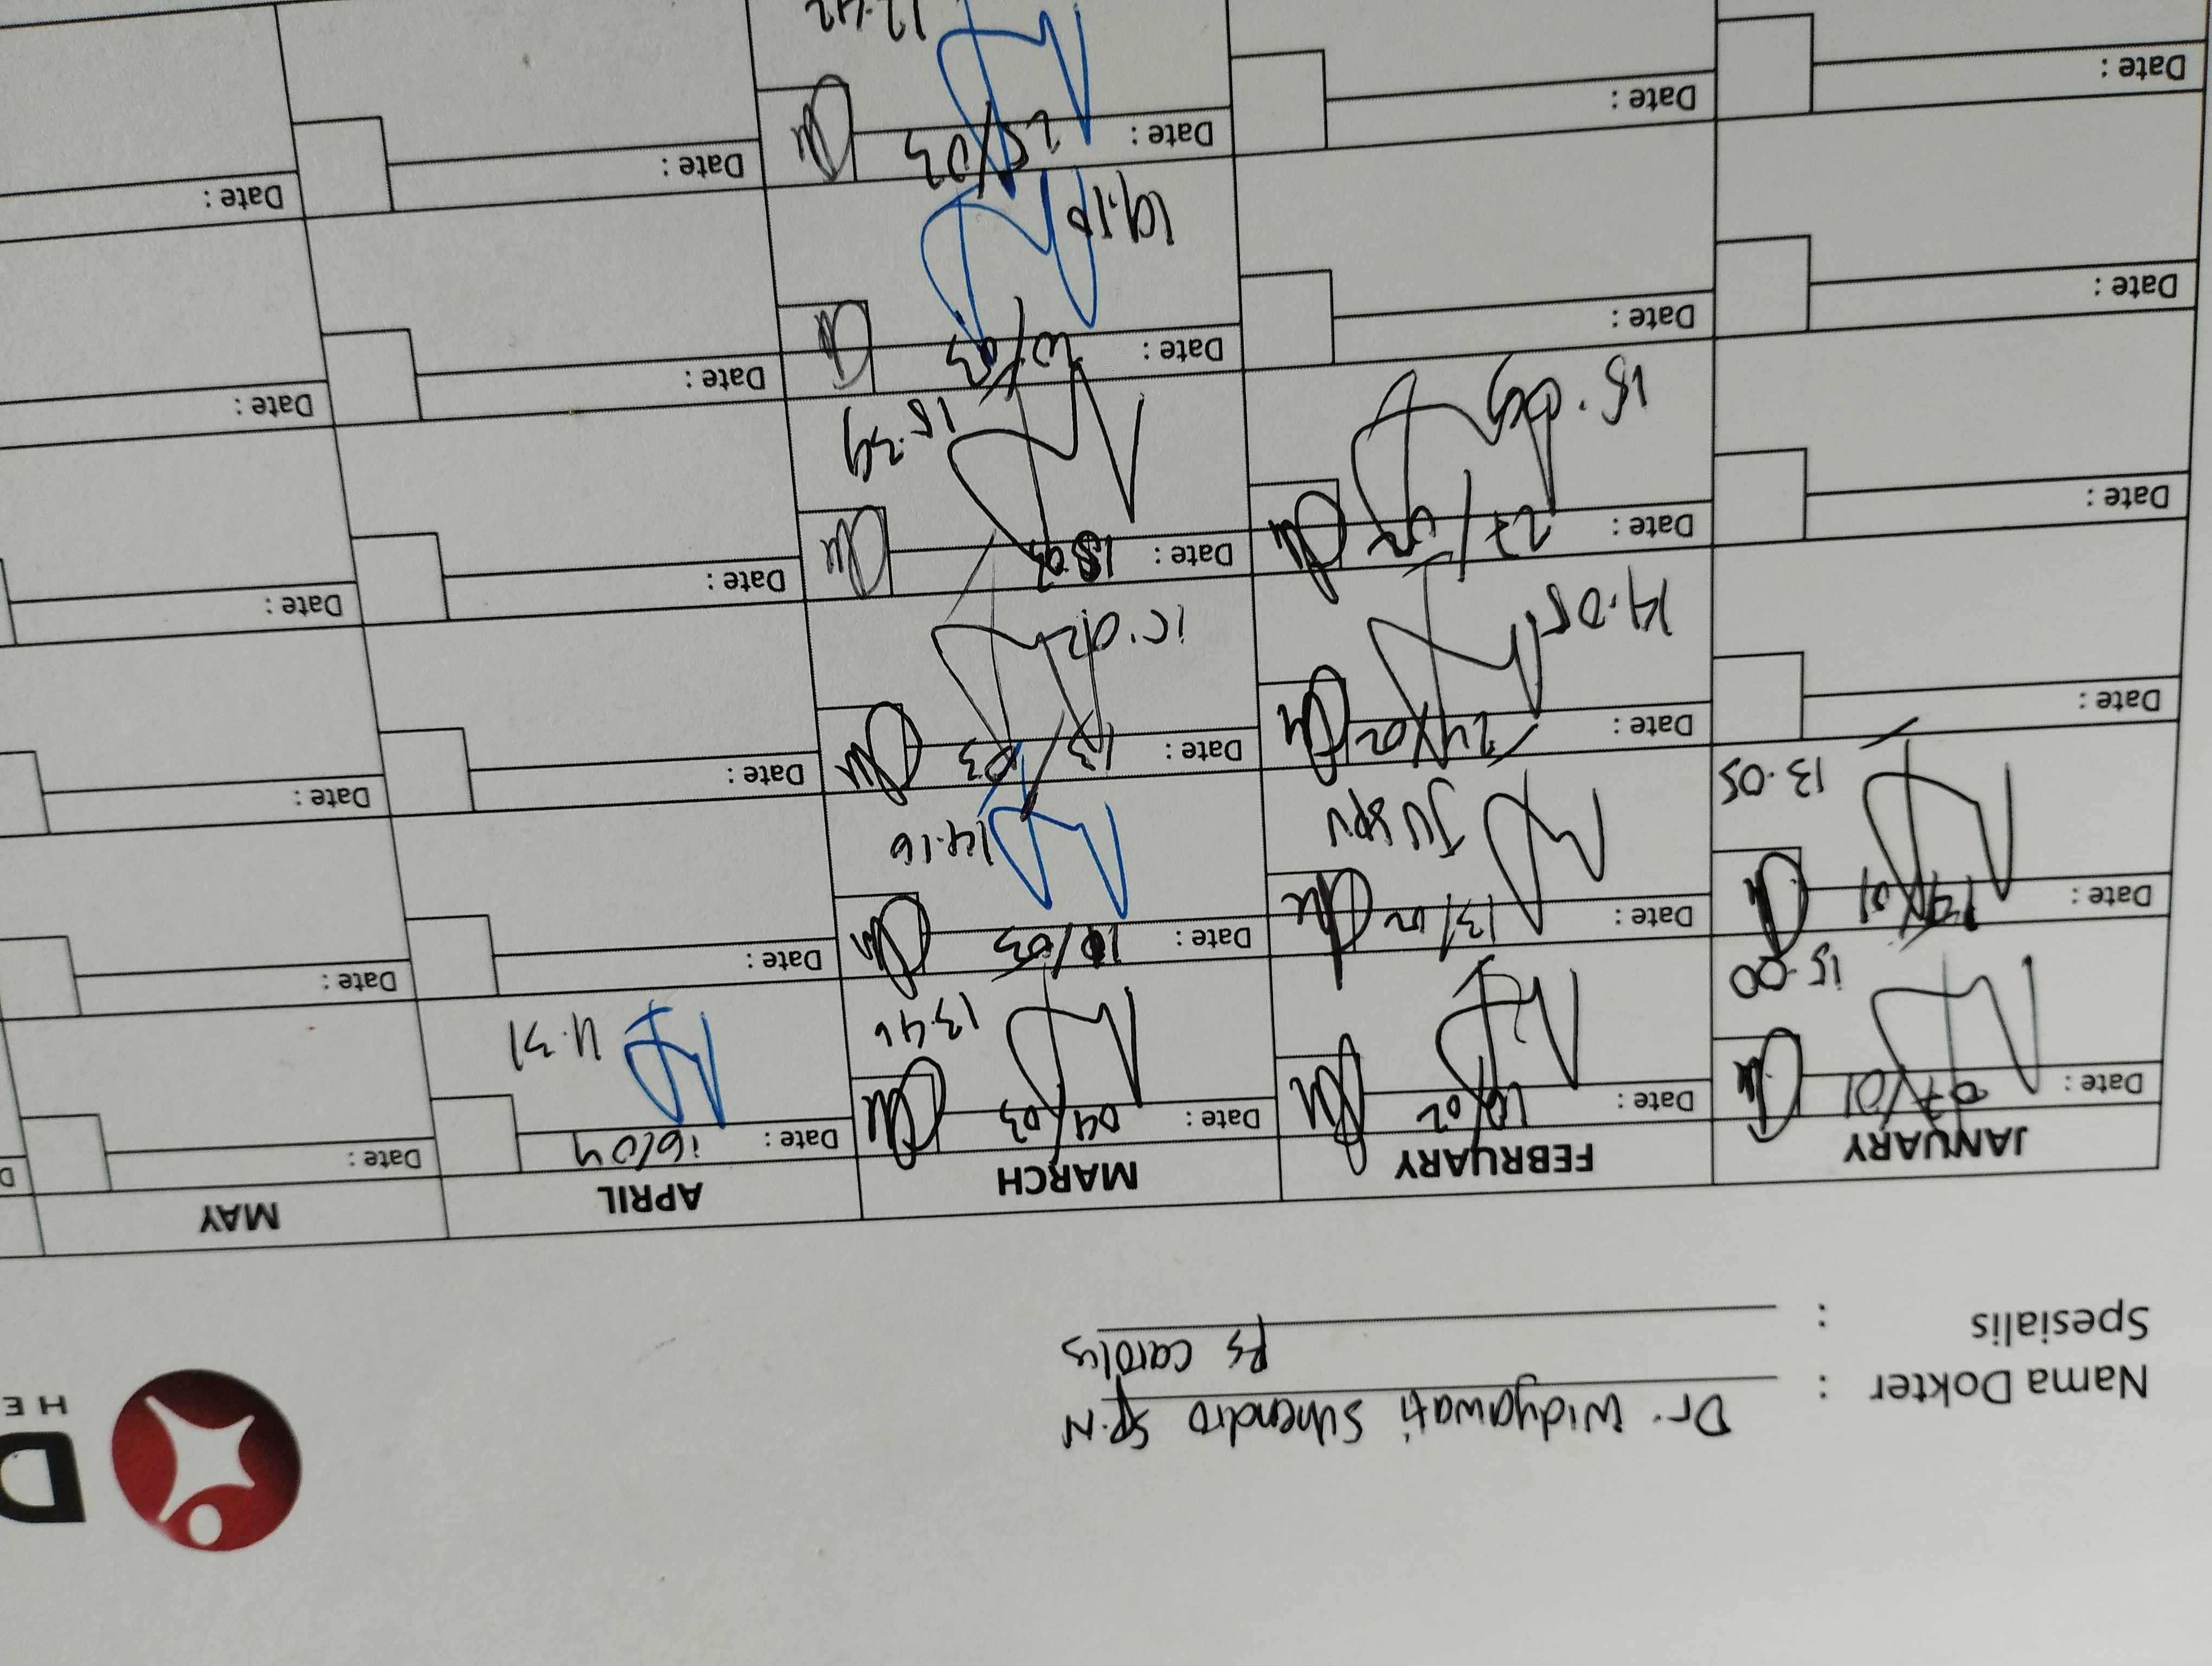 D
HE
Nama Dokter : Dr. Widyawati Suhendro Sp.N
Spesialis : RS Carolus
JANUARY
FEBRUARY
MARCH
APRIL
MAY
Date : 07/01
15.00
Date : 01
13.05
Date :
Date :
Date :
Date :
Date : 02
Date : 13/02
JU SPV
Date : 24/02
14.05
Date : 27/02
15.09
Date :
Date :
Date : 04/03
13.46
Date : 10/03
14.16
Date : 13/03
15.02
Date : 18 03
15.39
Date : 03
19.10
Date : 25/03
12.42
Date : 16/04
11.31
Date :
Date :
Date :
Date :
Date :
Date :
Date :
Date :
Date :
Date :
Date :
D